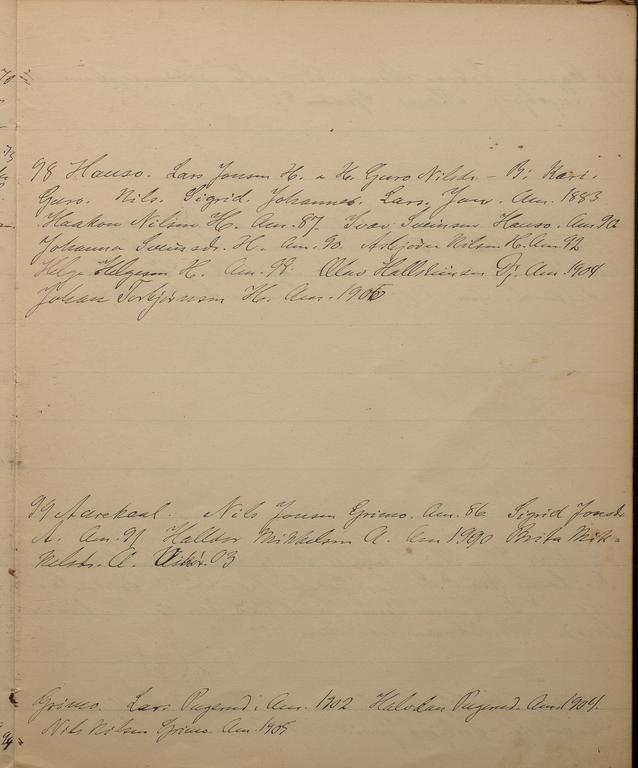 98 Hauso. Lars Jonsen H. & H. Guro Nilsdr. – B: Kari.
Guro. Nils. Sigrid. Johannes. Lars. Jon. Am. 1883
Haakon Nilsen H. Am. 87. Ivar Sveinsen Hauso. Am. 90
Johanna Sveinsdr. H. Am. 90. Asbjørn Nilsen H. Am. 92
Helge Helgesen H. Am. 98. Olav Hallsteinsen Dj. Am. 1904
Johan Torbjørnsen H. Am. 1905
99 Aarekaal. Nils Jonsen Grimo. Am. 86 Sigrid Jonsdr.
A. Am. 91 Halldor Mikkelsen A. Am 1900 Brita Mik=
kelsdr. A. Vikør. 03
Grimo. Lars Am. 1902 Halvdan Am 1904.
Nils Nilsen Grimo. Am. 1905